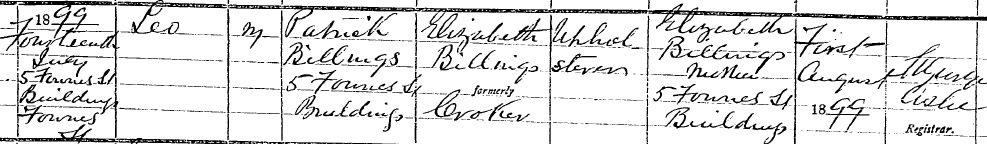 1899
Fourteenth
July
5 Fownes St
Buildings
Fownes
St
Leo
M
Patrick
Billings
5 Fownes St
Buildings
Elizabeth
Billings
formerly
Croker
Uphol-
sterer
Elizabeth
Billings
Mother
5 Fownes St
Buildings
First
August
1899
Registrar.